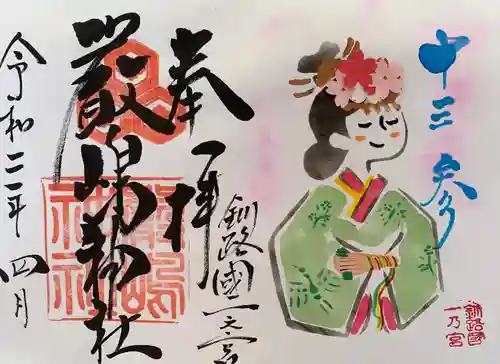 十三参
奉拝
釧路國一之宮
厳嶋神社
令和二年 四月
釧路國
一乃宮